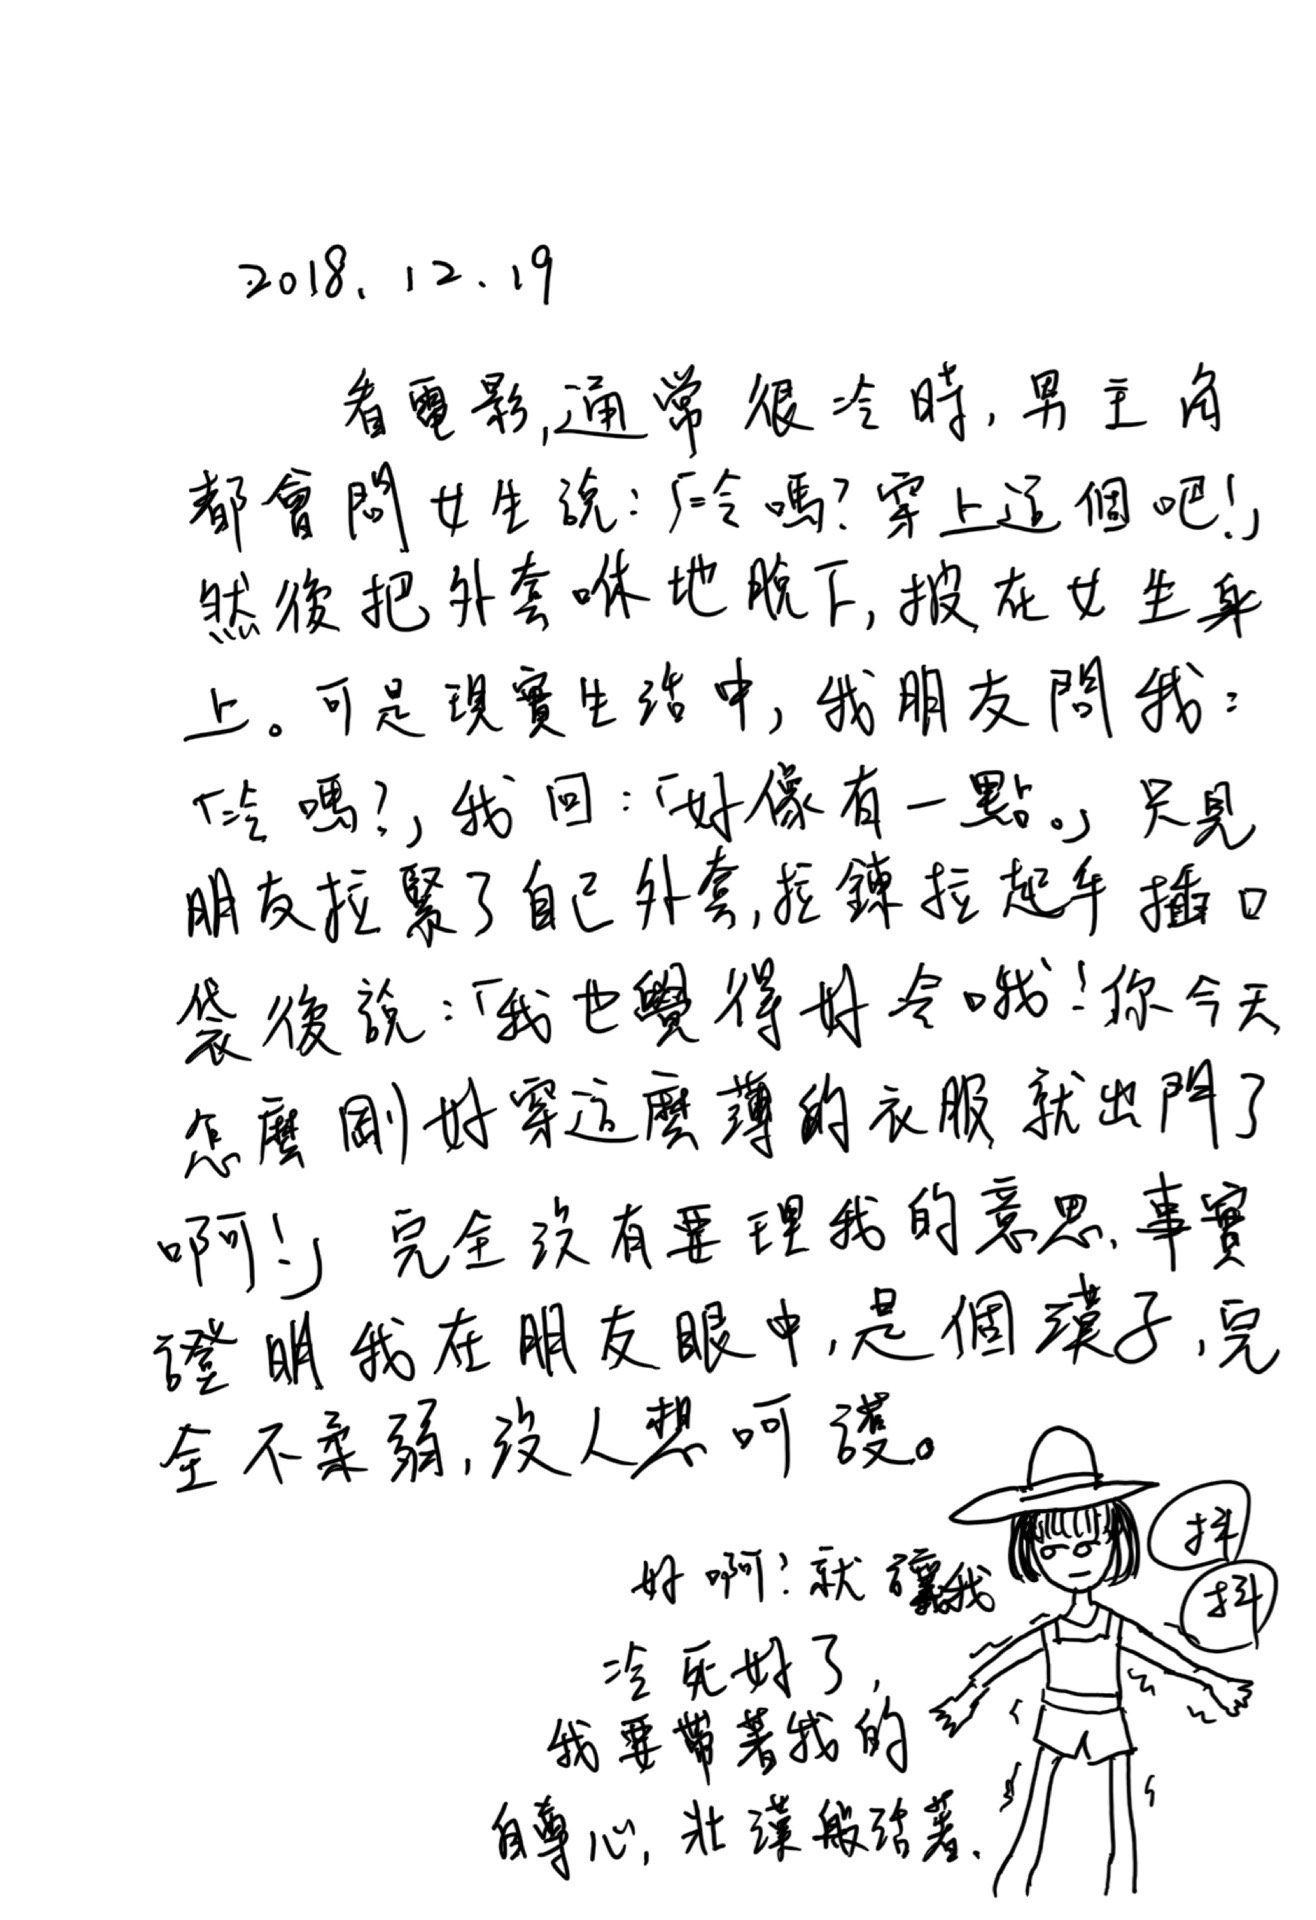 2018.12.19
看電影,通常很冷時,男主角
都會問女生說:「冷嗎?穿上這個吧!」
然後把外套咻地脫下,披在女生身
上。可是現實生活中,我朋友問我:
「冷嗎?」我回:「好像有一點。」只見
朋友拉緊了自己外套,拉鍊拉起手插口
袋後說:「我也覺得好冷哦!你今天
怎麼剛好穿這麼薄的衣服就出門了
啊!」 完全沒有要理我的意思、事實
證明我在朋友眼中,是個漢子,完
全不柔弱,沒人想呵護。
好啊!就讓我
冷死好了,
我要帶著我的
自尊心,壯漢般活著、
抖
抖